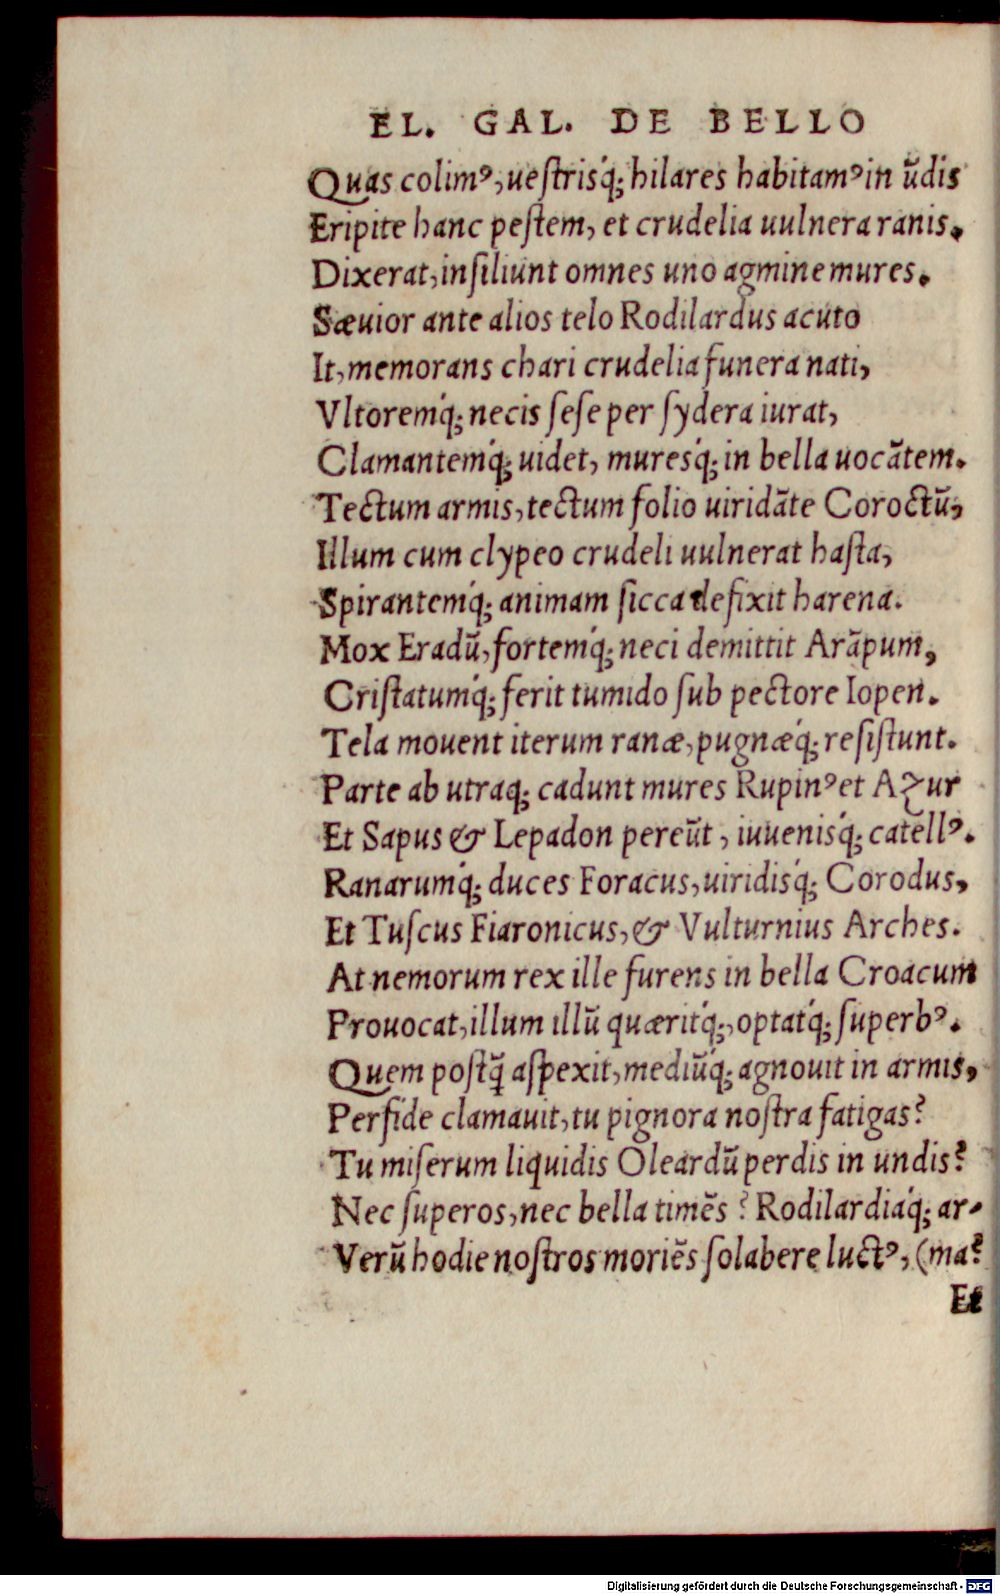 EL. GAL. DE BELLO
Quas colimꝰ, ueſtrisq́; hilares habitamꝰ in ūdis
Eripite hanc peſtem, et crudelia uulnera ranis.
Dixerat, inſiliunt omnes uno agmine mures.
Sæuior ante alios telo Rodilardus acuto
It, memorans chari crudelia funera nati,
Vltoremq́; necis ſeſe per ſydera iurat,
Clamantemq́; uidet, muresq́; in bella uocātem.
Tectum armis, tectum folio uiridāte Coroctū,
Illum cum clypeo crudeli uulnerat haſta,
Spirantemq́; animam ſicca defixit harena.
Mox Eradū, fortemq́; neci demittit Arāpum,
Criſtatumq́; ferit tumido ſub pectore Iopen.
Tela mouent iterum ranæ, pugnæq́; reſiſtunt.
Parte ab utraq; cadunt mures Rupinꝰ et Azur
Et Sapus & Lepadon pereūt, iuuenisq́; catellꝰ.
Ranarumq́; duces Foracus, uiridisq́; Corodus,
Et Tuſcus Fiaronicus, & Vulturnius Arches.
At nemorum rex ille furens in bella Croacum
Prouocat, illum illū quæritq́;, optatq́; ſuperbꝰ.
Quem poſtq̄ aſpexit, mediūq́; agnouit in armis,
Perfide clamauit, tu pignora noſtra fatigas?
Tu miſerum liquidis Oleardū perdis in undis?
Nec ſuperos, nec bella timēs? Rodilardiaq́; ar-
Verū hodie noſtros moriēs ſolabere luctꝰ, (ma?
Et
Digitalisierung gefördert durch die Deutsche Forschungsgemeinschaft - DFG